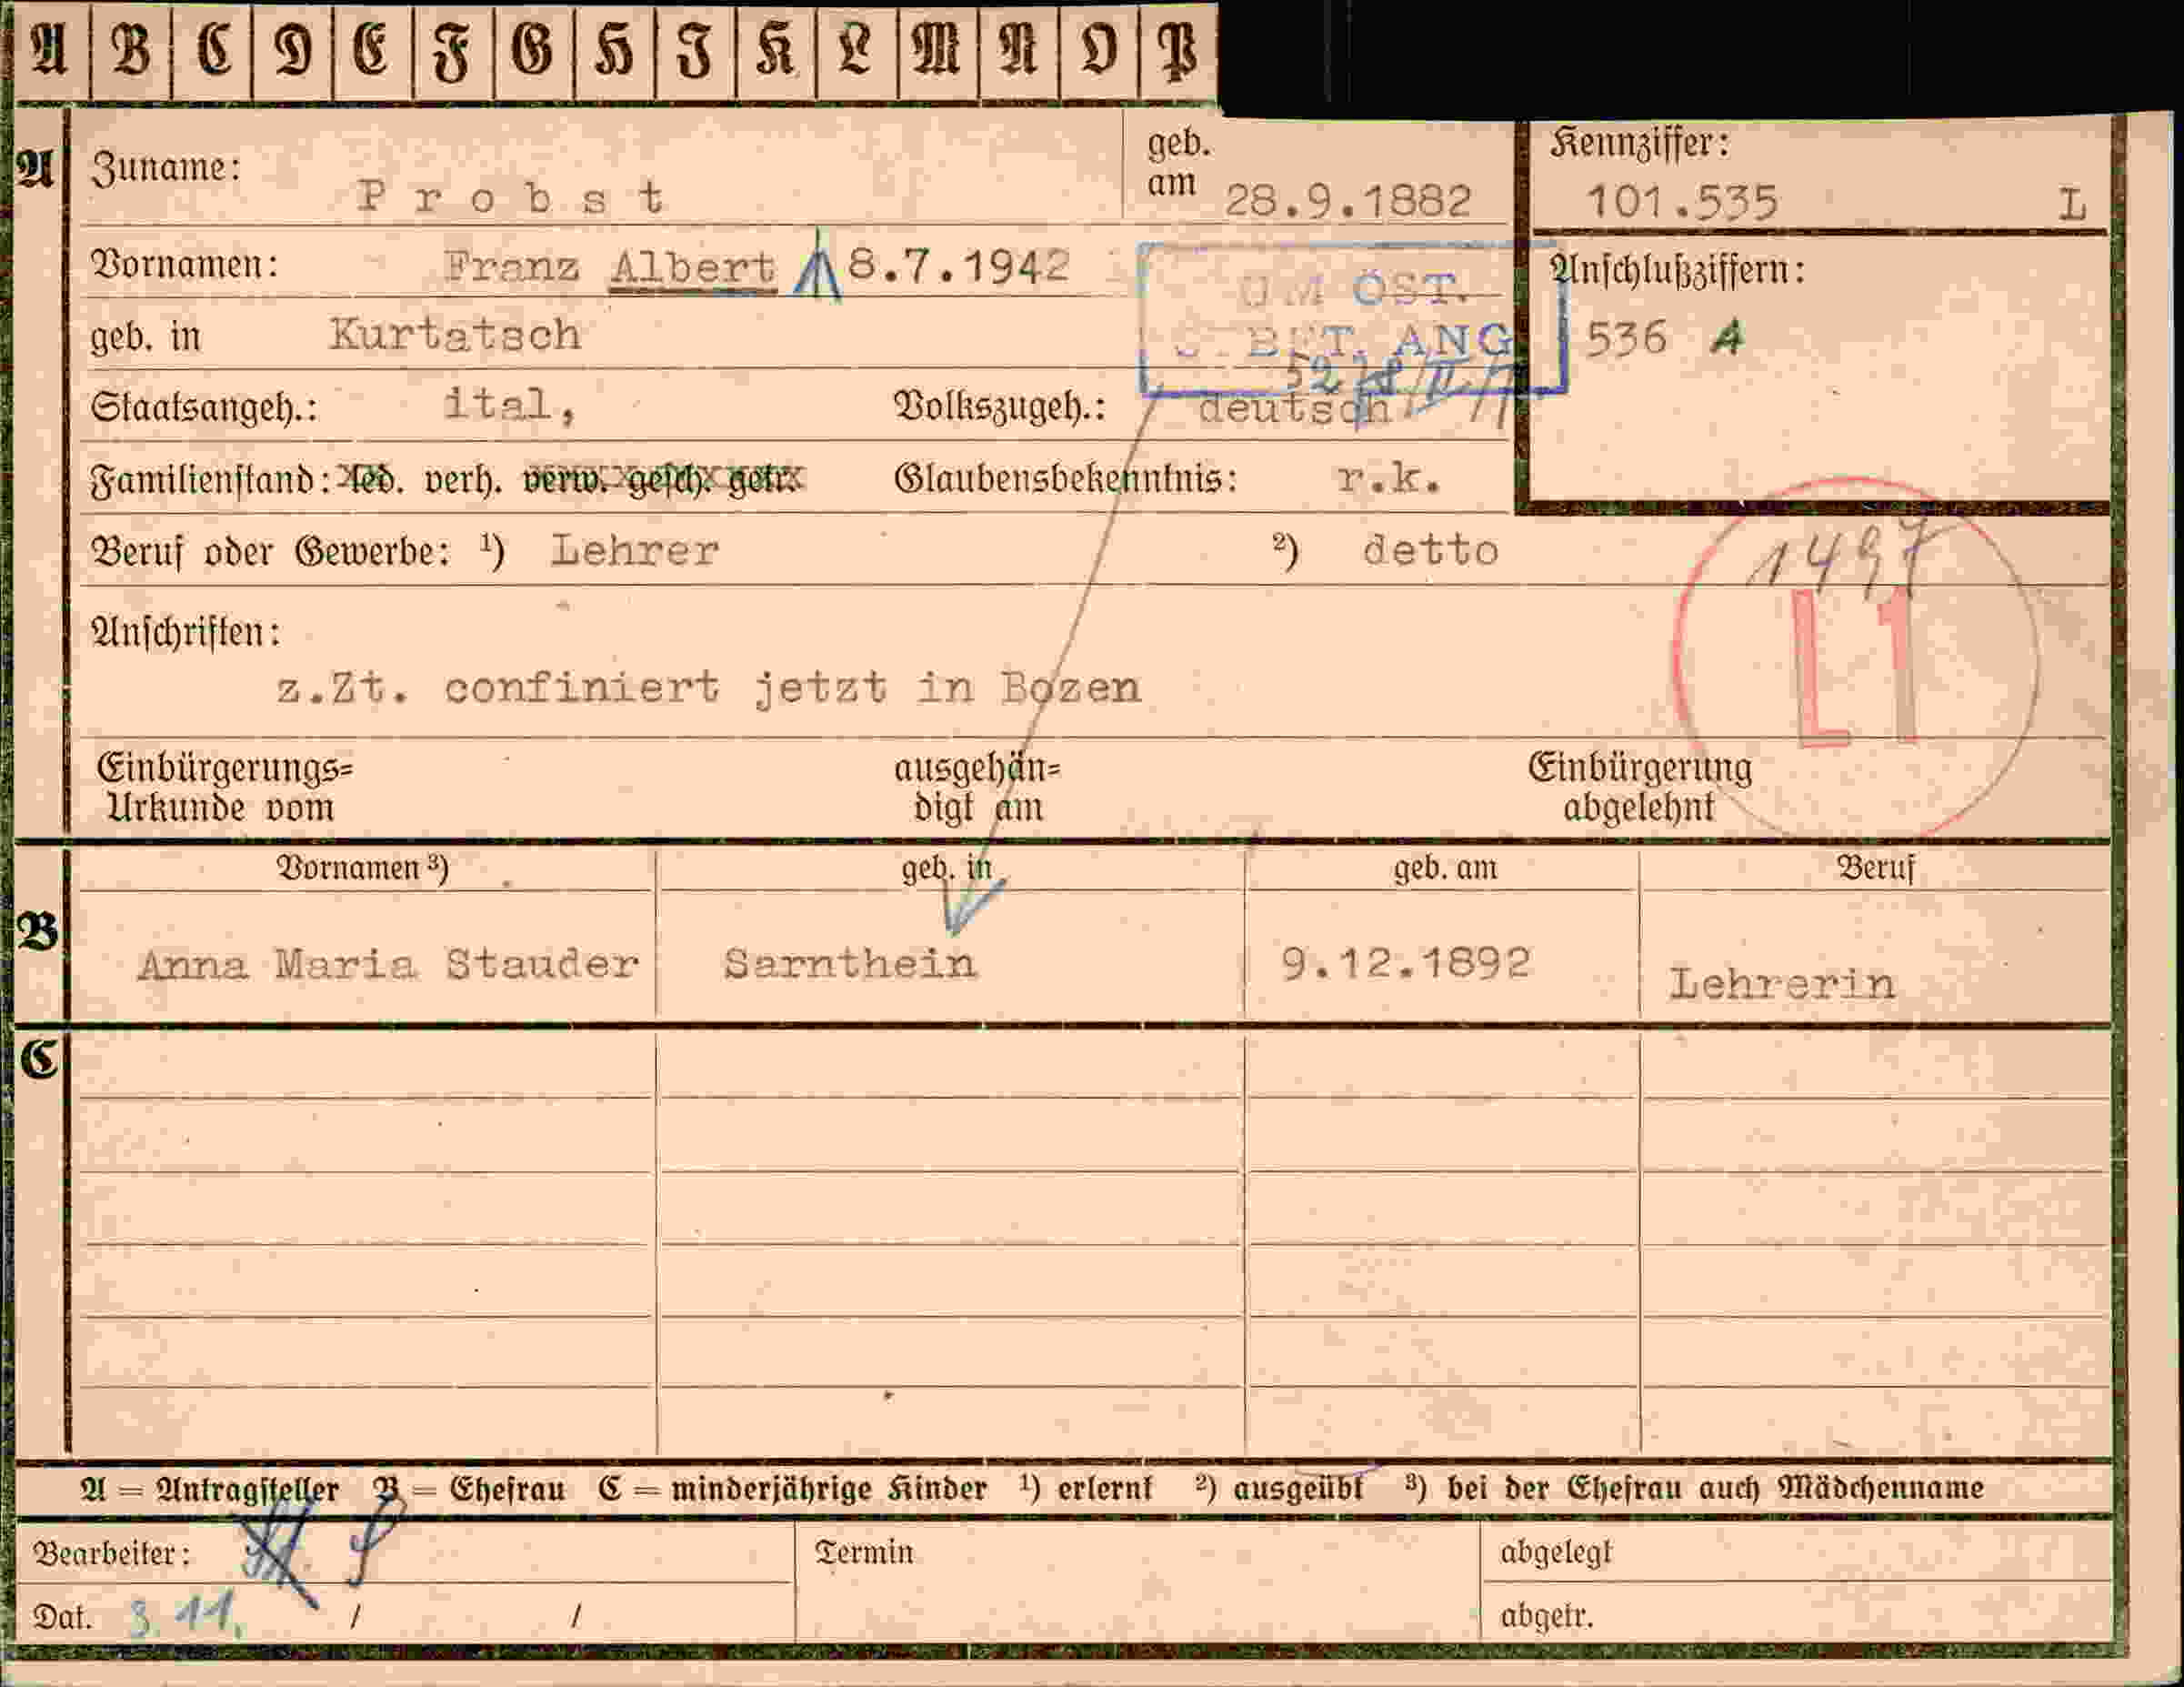 A B C D E F G H I K L M N O P
A Zuname: Probst geb. am 28.9.1882
Kennziffer: 101.535 L
Vornamen: Franz Albert 8.7.1942
Anschlußziffern: 536 A
UM ÖST.
ST. BÜT. ANG
geb. in Kurtatsch
Staatsangeh.: ital, Volkszugeh.: deutsch
Familienstand: led. verh. verw. gesch. getr. Glaubensbekenntnis: r.k.
Beruf oder Gewerbe: ¹) Lehrer ²) detto
1497
L1
Anschriften:
z.Zt. confiniert jetzt in Bozen
Einbürgerungs= ausgehän= Einbürgerung
Urkunde vom digt am abgelehnt
B Vornamen ³) geb. in geb. am Beruf
Anna Maria Stauder Sarnthein 9.12.1892 Lehrerin
C
A = Antragsteller B = Ehefrau C = minderjährige Kinder ¹) erlernt ²) ausgeübt ³) bei der Ehefrau auch Mädchenname
Bearbeiter: Termin abgelegt
Dat. 3.11. / / abgetr.